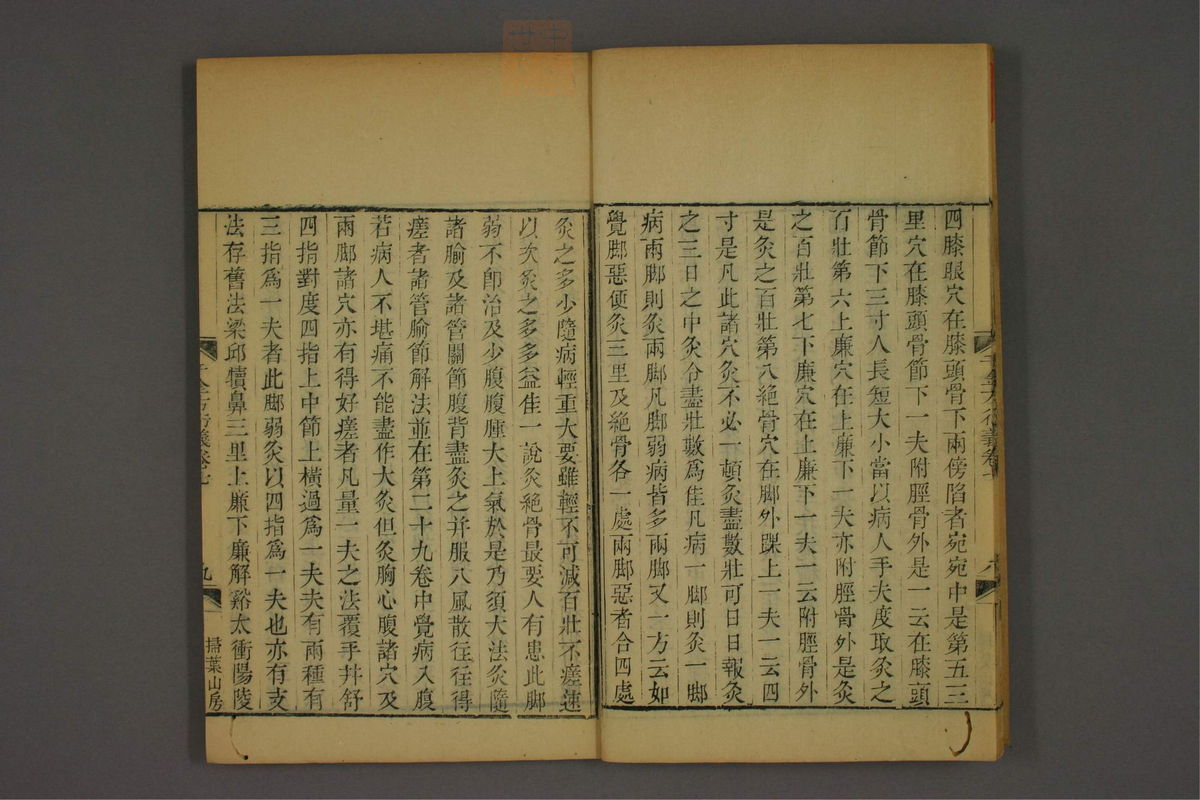 四膝眼穴在膝頭骨下兩傍陷者宛宛中是第五三
里穴在膝頭骨節下一夫附脛骨外是一云在膝頭
骨節下三寸人長短大小當以病人手夫度取灸之
百壯第六上廉穴在上廉下一夫亦附脛骨外是灸
之百壯第七下廉穴在上廉下一夫一云附脛骨外
是灸之百壯第八絕骨穴在脚外踝上一夫一云四
寸是凡此諸穴灸不必一頓灸盡數壯可日日報灸
之三日之中灸令盡壯數為佳凡病一脚則灸一脚
病兩脚則灸兩脚凡脚弱病皆多兩脚又一方云如
覺脚惡便灸三里及絕骨各一處兩脚惡者合四處
灸之多少隨病輕重大要雖輕不可減百壯不瘥速
以次灸之多多益佳一說灸絕骨最要人有患此脚
弱不卽治及少腹腹腫大上氣於是乃須大法灸隨
諸腧及諸管關節腹背盡灸之并服八風散往往得
瘥者諸管腧節解法並在第二十九卷中覺病入腹
若病人不堪痛不能盡作大灸但灸胸心腹諸穴及
兩脚諸穴亦有得好瘥者凡量一夫之法覆手并舒
四指對度四指上中節上橫過爲一夫夫有兩種有
三指爲一夫者此脚弱灸以四指爲一夫也亦有支
法存舊法梁邱犢鼻三里上廉下廉解谿太衝陽陵
千金方衍義卷七
九
掃葉山房